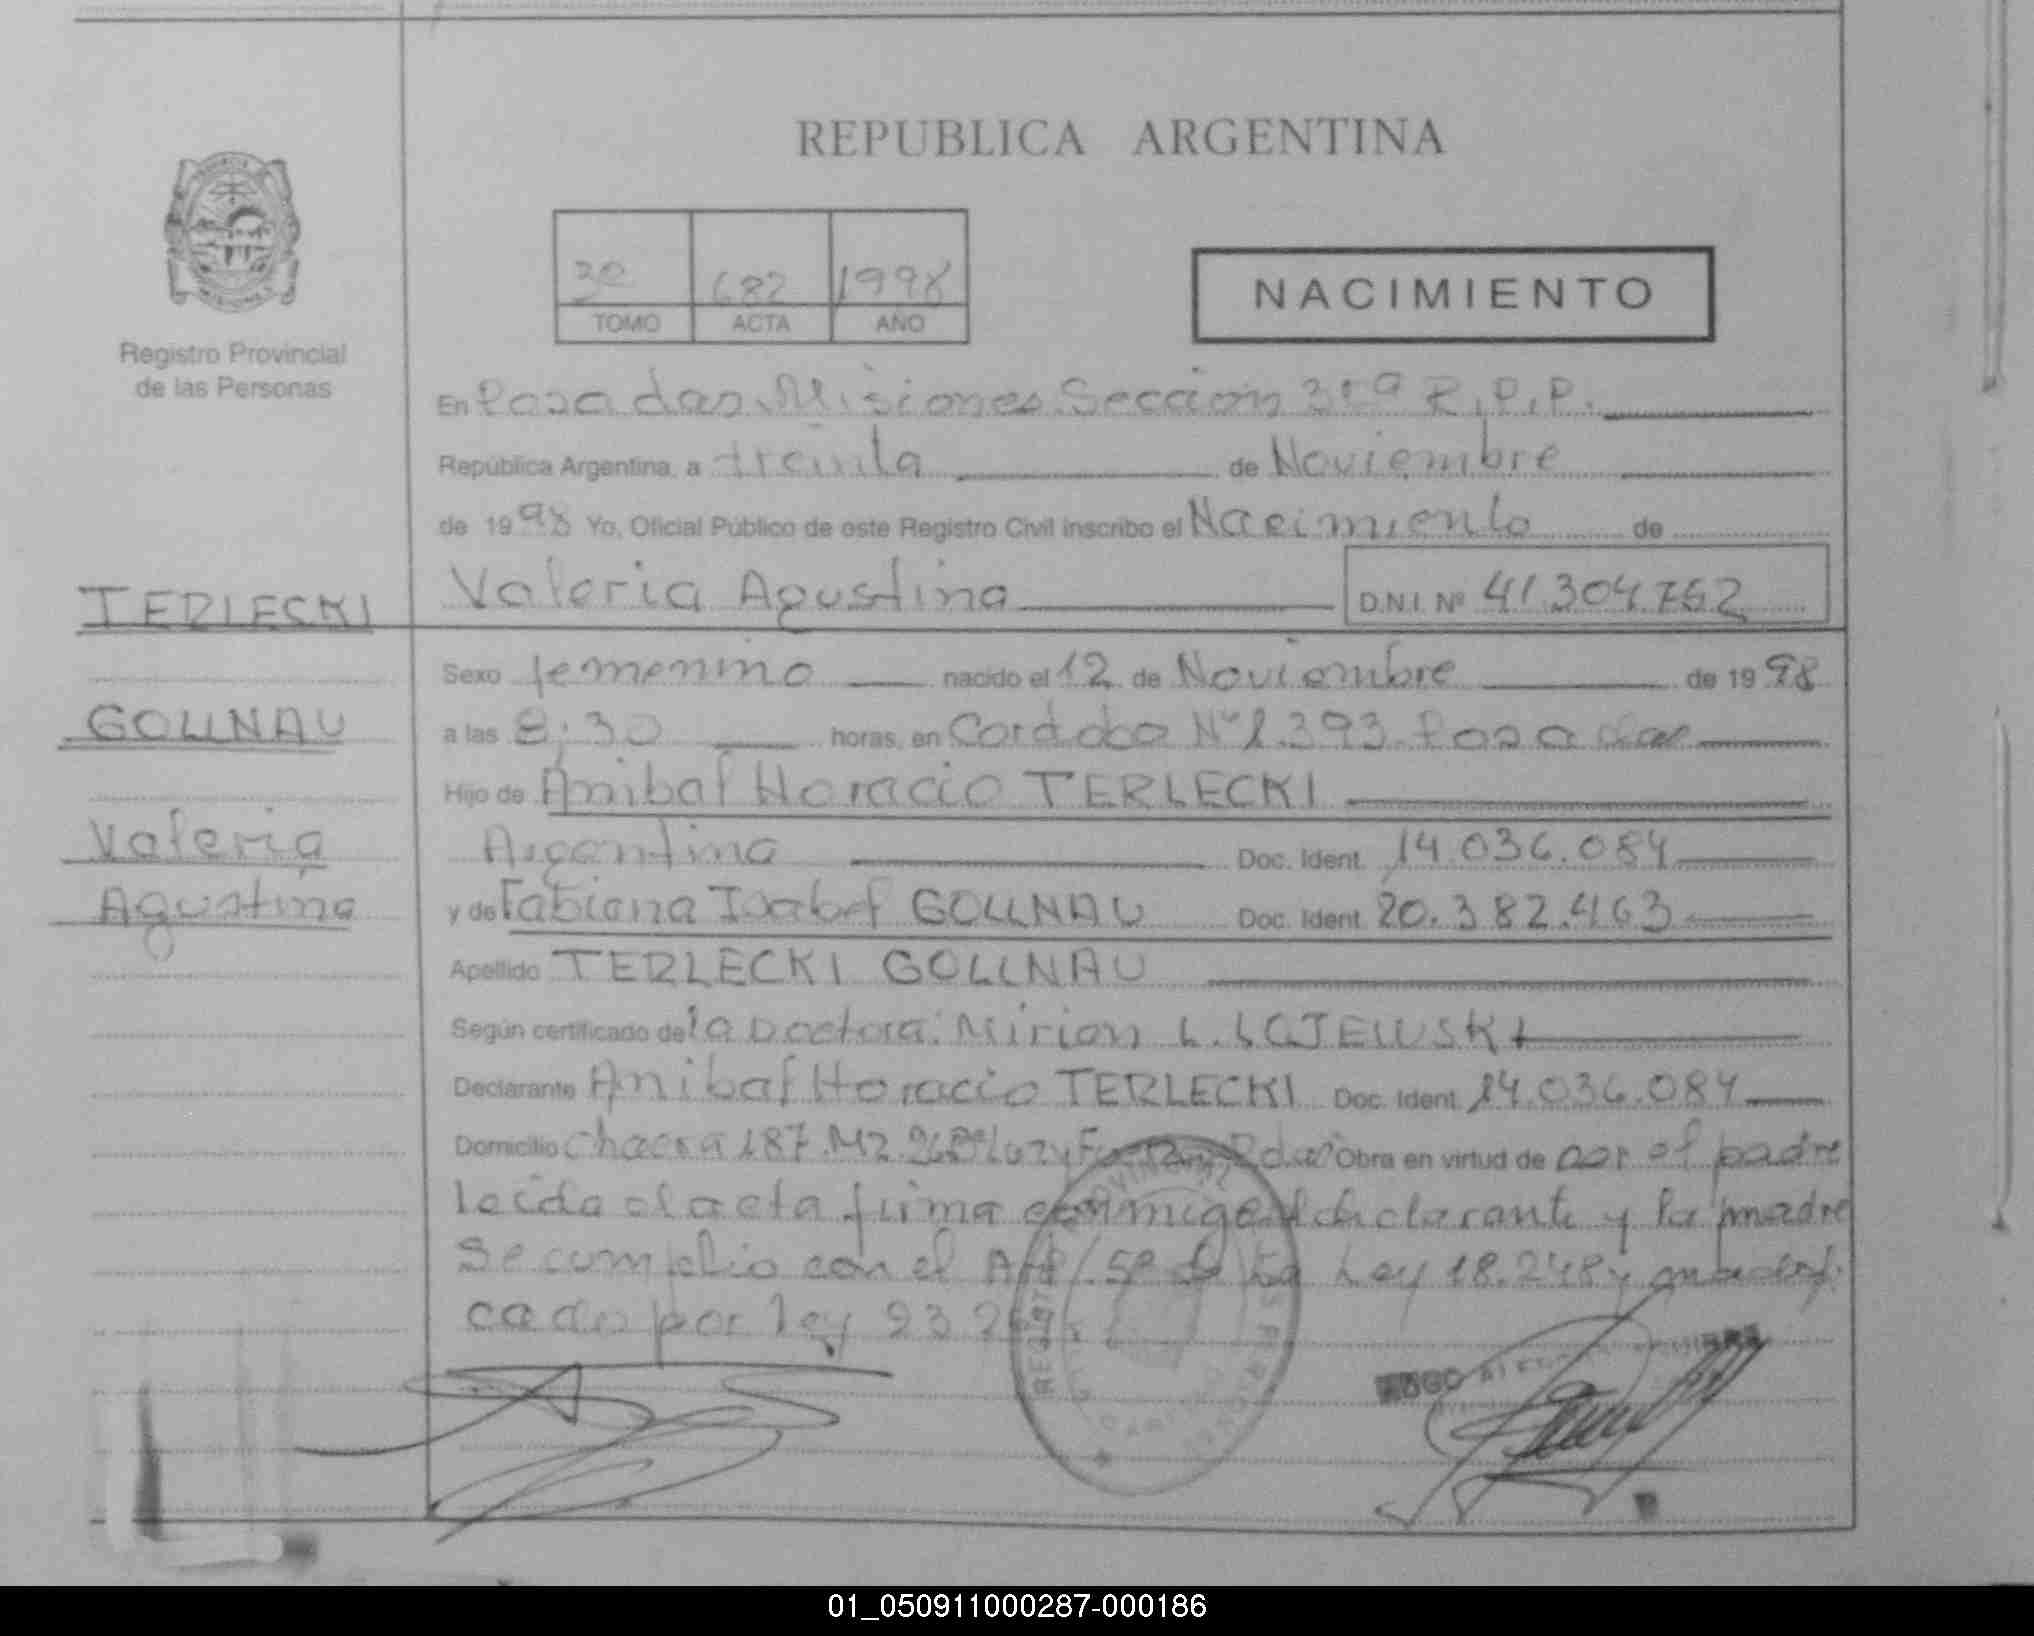 REPUBLICA ARGENTINA
Registro Provincial
de las Personas
3º 682 1998
TOMO ACTA AÑO
NACIMIENTO
En Posadas Misiones Sección 3era R.P.P.
República Argentina, a treinta de Noviembre
de 1998 Yo, Oficial Público de este Registro Civil inscribo el Nacimiento de
Valeria Agustina D.N.I. Nº 41.304.752
TERLECKI
GOLLNAU
Valeria
Agustina
Sexo femenino nacido el 12 de Noviembre de 1998
a las 8:30 horas, en Cordoba Nº 1.393 Posadas
Hijo de Anibal Horacio TERLECKI
Argentina Doc. Ident. 14.036.084
y de Fabiana Isabel GOLLNAU Doc. Ident. 20.382.463
Apellido TERLECKI GOLLNAU
Según certificado de la Doctora: Mirian L. LAJEWSKI
Declarante Anibal Horacio TERLECKI Doc. Ident. 14.036.084
Domicilio Chacra 187 Mz Luz y Fuerza Pdas Obra en virtud de ser el padre
leida el acta firma conmigo el declarante y la madre
Se cumplio con el Art. 5º de la Ley 18.248 y
cado por ley
01_050911000287-000186